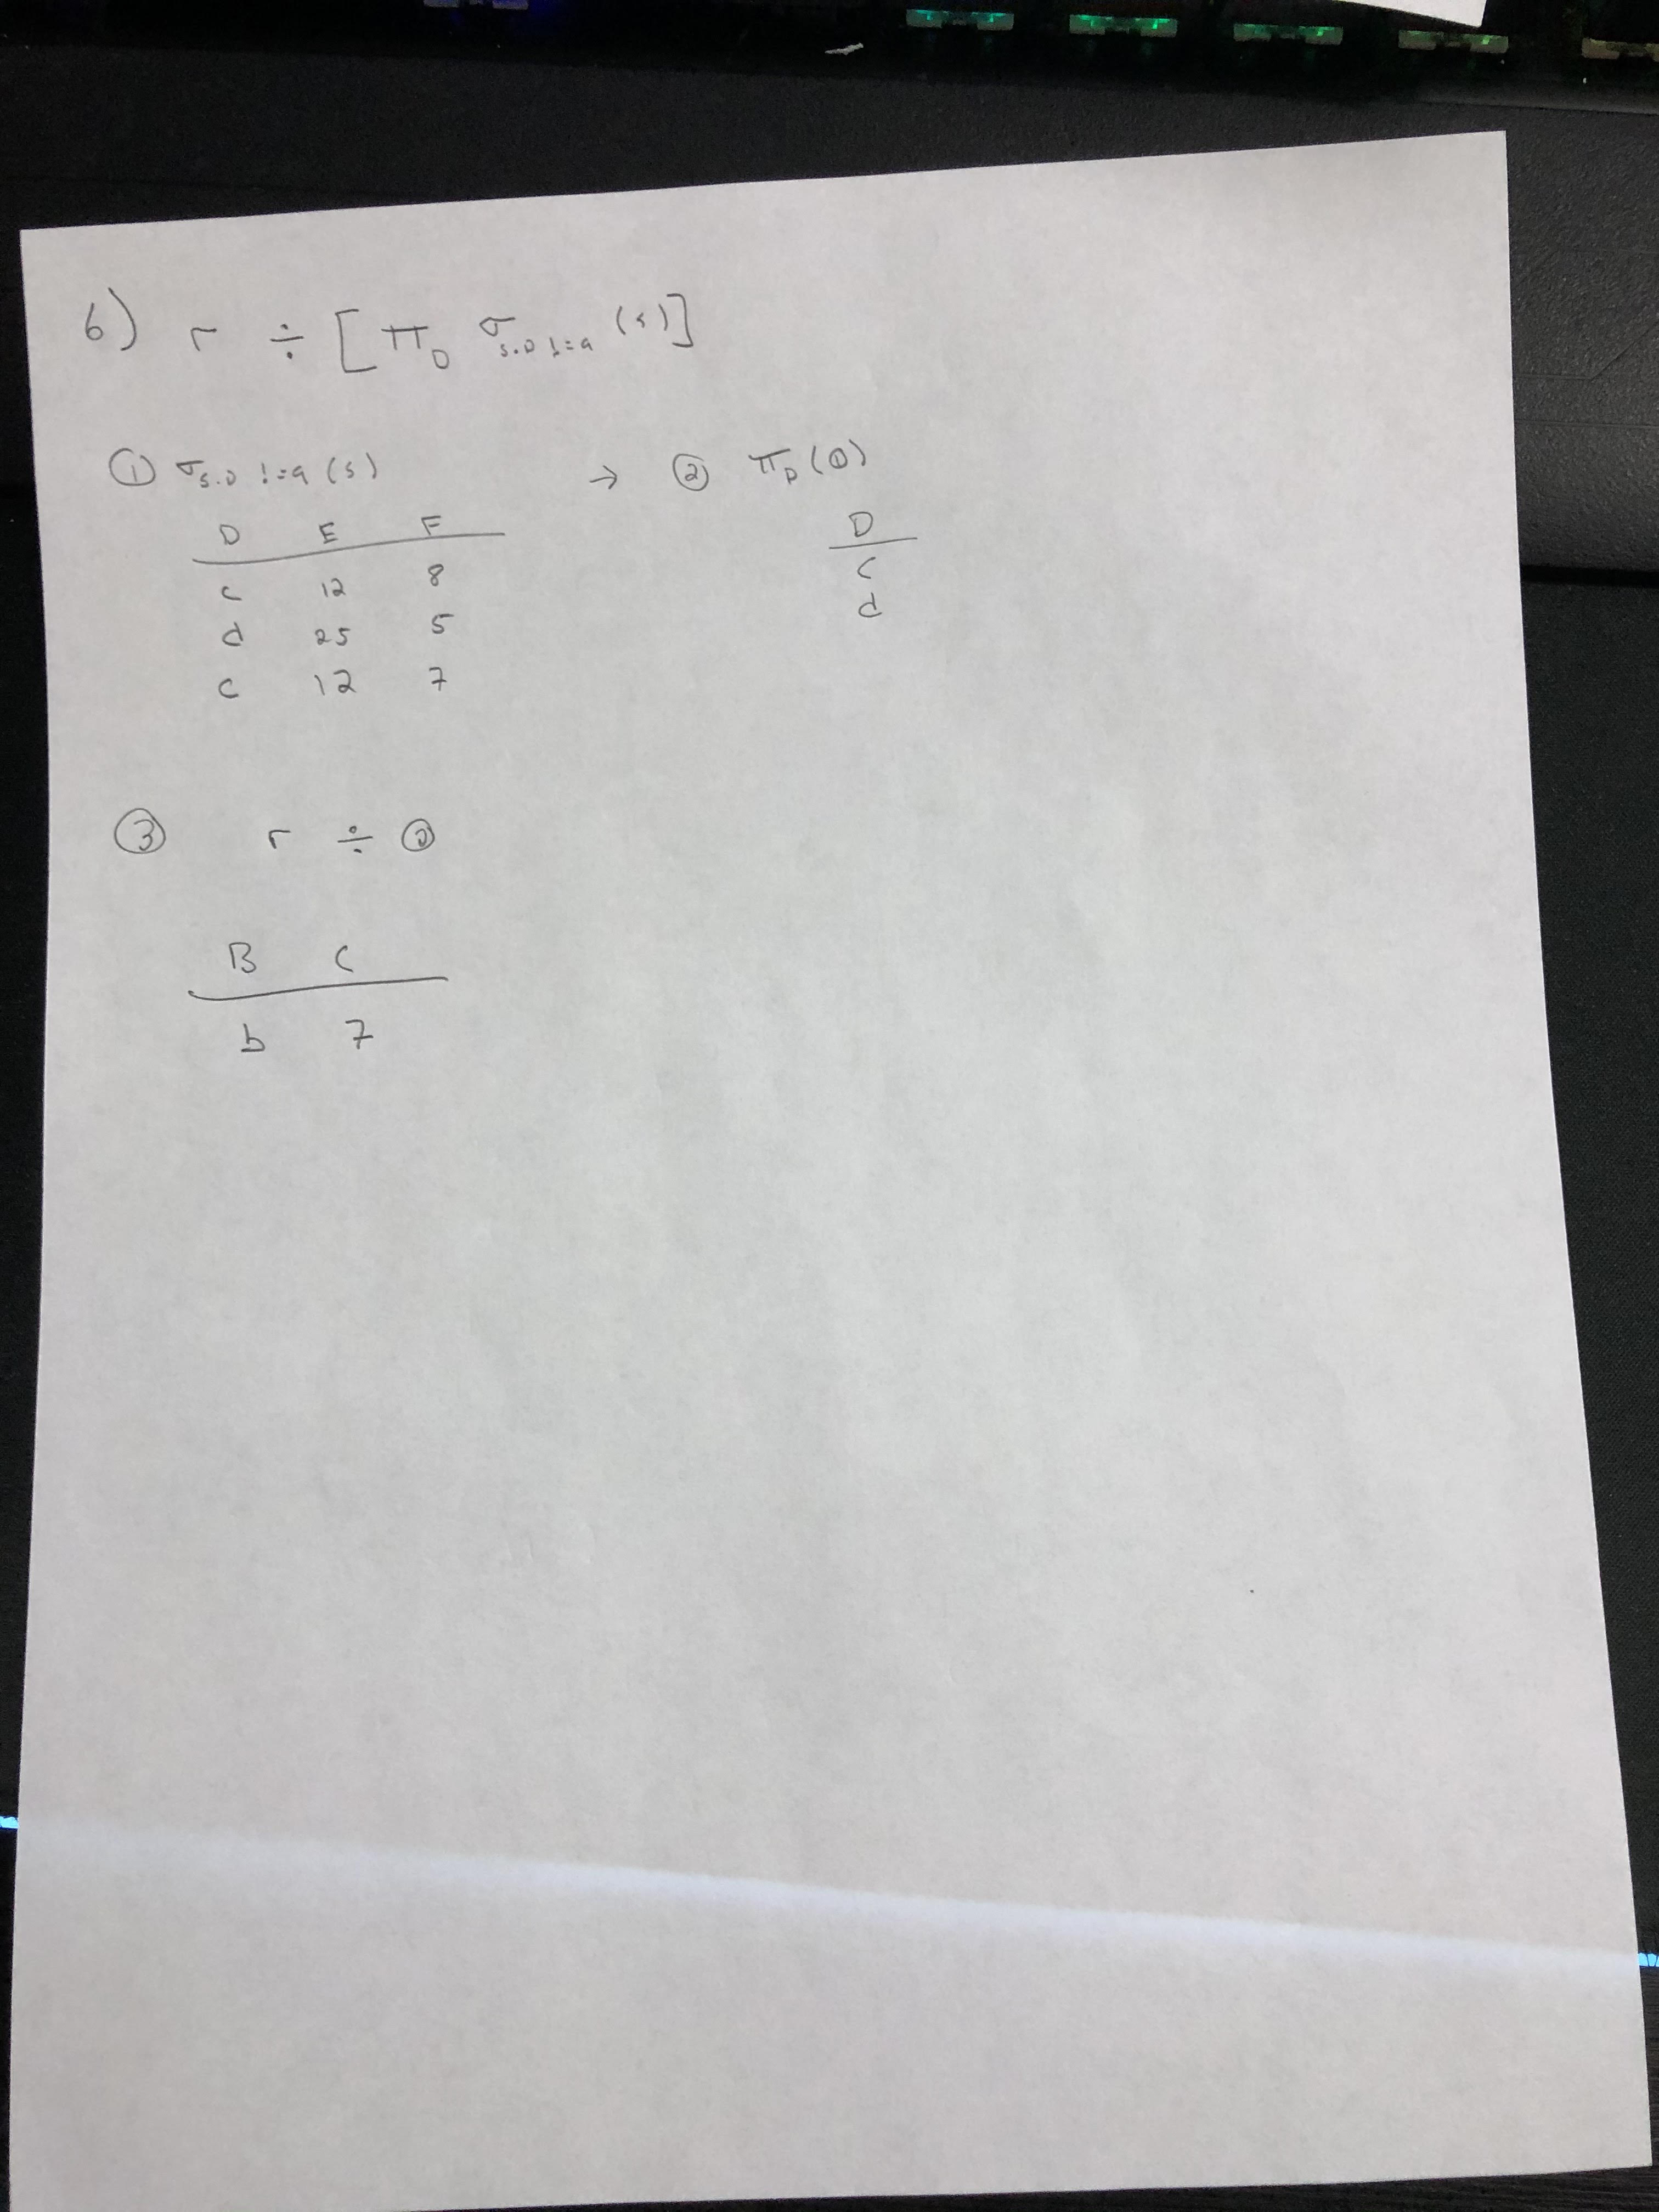 6) r ÷ [π_D σ_s.D != a (s)]
① σ_s.D != a (s) → ② π_D (①)
D E F
c 12 8
d 25 5
c 12 7
D
c
d
③ r ÷ ②
B C
b 7